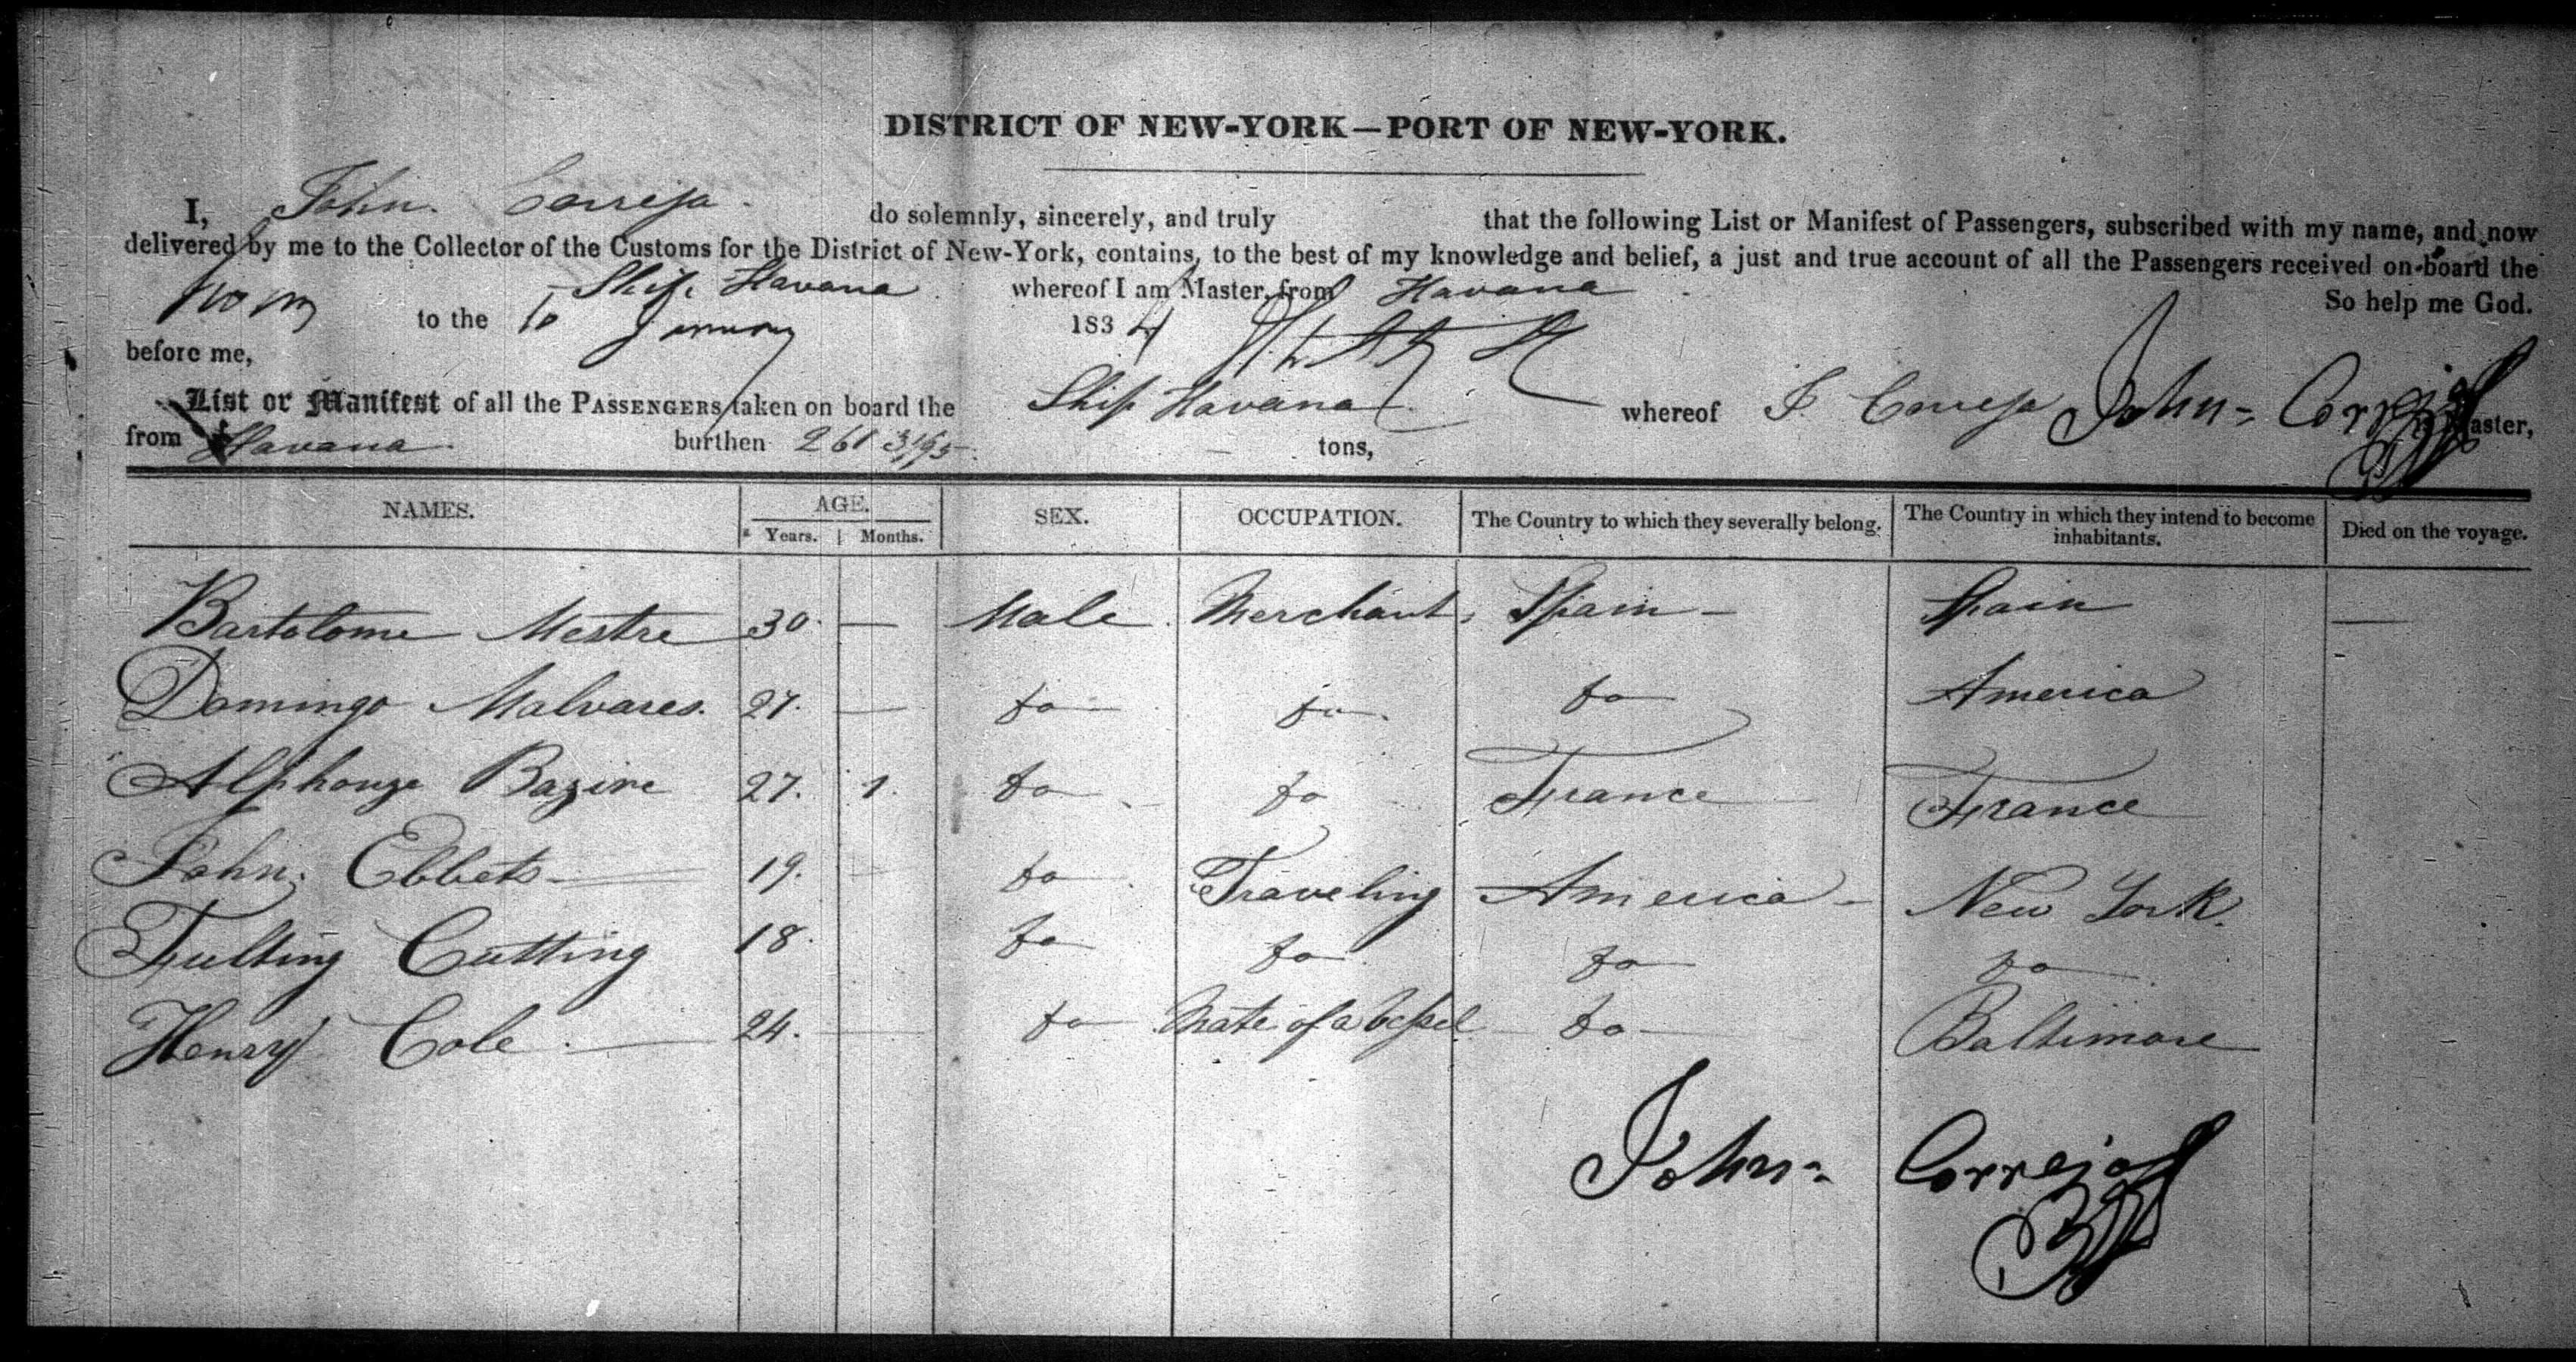 DISTRICT OF NEW-YORK—PORT OF NEW-YORK.
I, John Correja do solemnly, sincerely, and truly that the following List or Manifest of Passengers, subscribed with my name, and now
delivered by me to the Collector of the Customs for the District of New-York, contains, to the best of my knowledge and belief, a just and true account of all the Passengers received on-board the
Ship Havana whereof I am Master, from Havana So help me God.
to the 10 January 1834
before me,
List or Manifest of all the PASSENGERS taken on board the Ship Havana whereof J. Correja John Correja is Master,
from Havana burthen 261 31/95 tons,
NAMES. AGE. SEX. OCCUPATION. The Country to which they severally belong. The Country in which they intend to become inhabitants. Died on the voyage.
Years. Months.
Bartolome Mestre 30. — Male Merchant Spain — Spain —
Domingo Malvares. 27. — do do do America
Alphonze Bazire 27. 1. do do France France
John Ebbets 19. do Traveling America New York.
Fulting Cutting 18. do do do do
Henry Cole 24. do Mate of a Vessel do Baltimore
John Correja